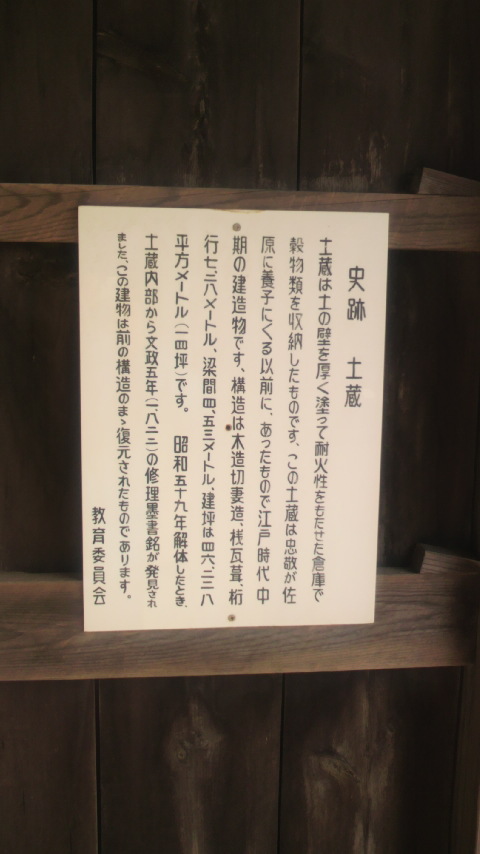 史跡　土蔵
土蔵は土の壁を厚く塗って耐火性をもたせた倉庫で
穀物類を収納したものです、この土蔵は忠敬が佐
原に養子にくる以前に、あったもので江戸時代中
期の建造物です、構造は木造切妻造、桟瓦葺、桁
行七、三八メートル、梁間四、五三メートル、建坪は四六、二三八
平方メートル（一四坪）です。　昭和五十九年解体したとき、
土蔵内部から文政五年（一、八二二）の修理墨書銘が発見され
ました、この建物は前の構造のまゝ復元されたものであります。
教育委員会